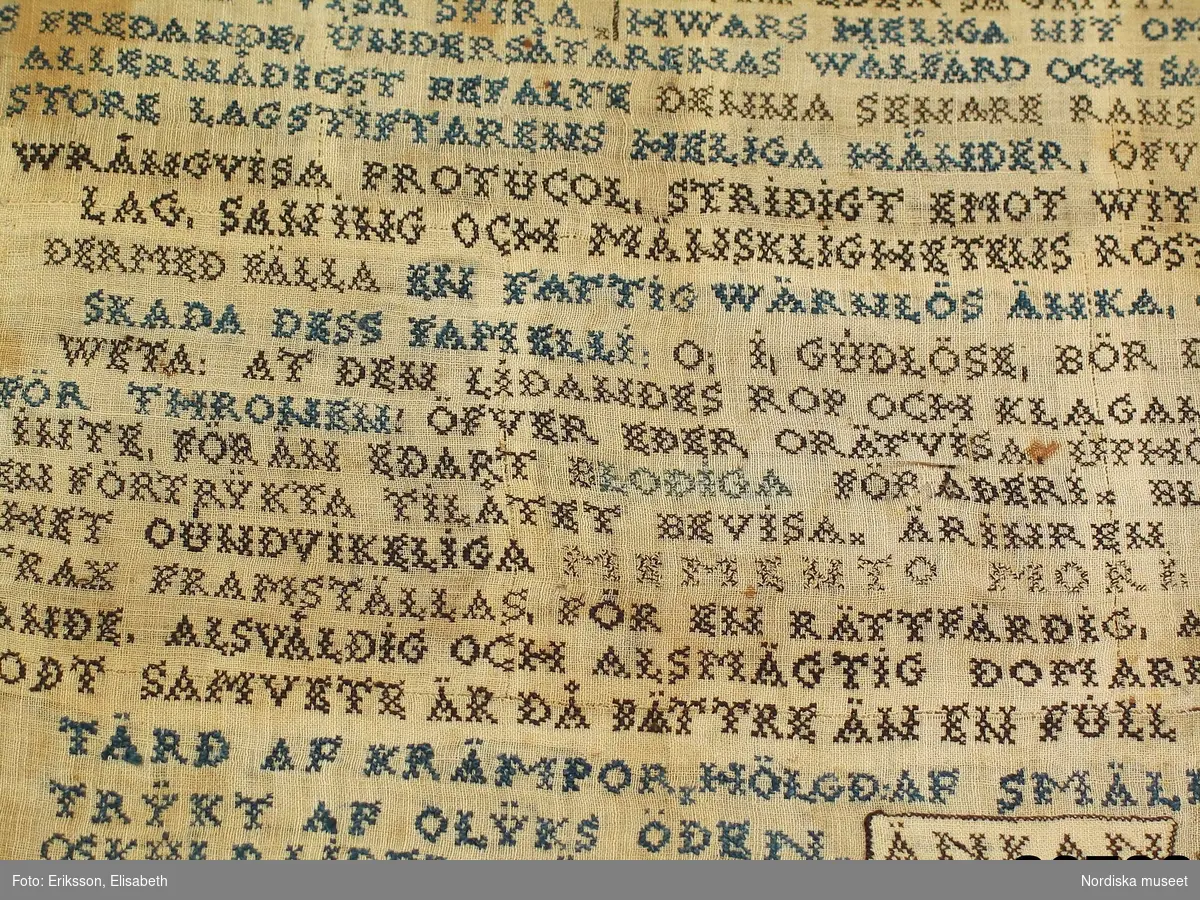 VISA SPIRA HWARS HELIGA NIT OM
FREDANDE, UNDERSÅTARENAS WÄLFÄRD OCH SA
ALLERNÅDIGST BEFALTE DENNA SENARE RANS
STORE LAGSTIFTARENS HELIGA HÄNDER, ÖFV
WRÅNGVISA PROTUCOL, STRIDIGT EMOT WIT
LAG, SANING OCH MÄNSKLIGHETENS RÖS
DERMED FÄLLA EN FATTIG WÄRNLÖS ÄNKA,
SKADA DESS FAMELLI: O; I, GUDLÖSE, BÖR
WETA: AT DEN LIDANDES ROP OCH KLAGAN
FÖR THRONEN! ÖFVER EDER ORÄTVISA UPHÖ
INTE, FÖR ÄN EDART BLODIGA FÖRÄDERI: BL
EN FÖRTRŸKTA TILÄTET BEVISA. ÄRINREN
HET OUNDVIKELIGA MEMENTO MORI:
TRAX FRAMSTÄLLAS, FÖR EN RÄTTFÄRDIG, A
ANDE, ALSVÅLDIG OCH ALSMÄGTIG DOMARE
ODT SAMVETE ÄR DÅ BÄTTRE ÄN EN FULL
TÄRD AF KRÄMPOR, HÖLGD AF SMÄL
TRŸKT AF OLŸKS ÖDEN
ÄNKAN
Foto: Eriksson, Elisabeth
Nordiska museet